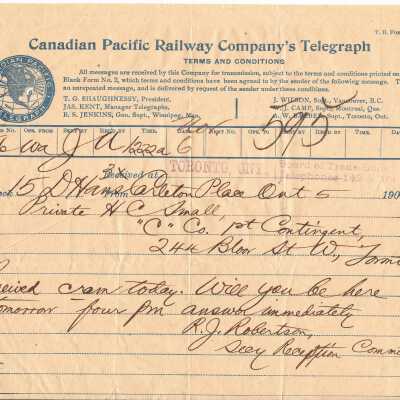 T. D. Form
Canadian Pacific Railway Company's Telegraph
TERMS AND CONDITIONS
All messages are received by this Company for transmission, subject to the terms and conditions printed on
Blank Form No. 2, which terms and conditions have been agreed to by the sender of the following message.
an unrepeated message, and is delivered by request of the sender under these conditions.
T. G. SHAUGHNESSY, President.
JAS. KENT, Manager Telegraphs.
B. S. JENKINS, Gen. Supt., Winnipeg, Man.
J. WILSON, Supt., Vancouver, B.C.
J. CAMP, Supt., Montreal, Que.
Supt., Toronto, Ont.
No. OPR. FROM SENT BY REC'D BY TIME
TORONTO, ONT.
Board of Trade
Telephones
Received at
15 D H Carleton Place Ont 5 190
Private H C Small,
"C" Co. 1st Contingent,
244 Bloor St W.,
today. Will you be here
four pm answer immediately
R. J. Robertson,
Secy Reception